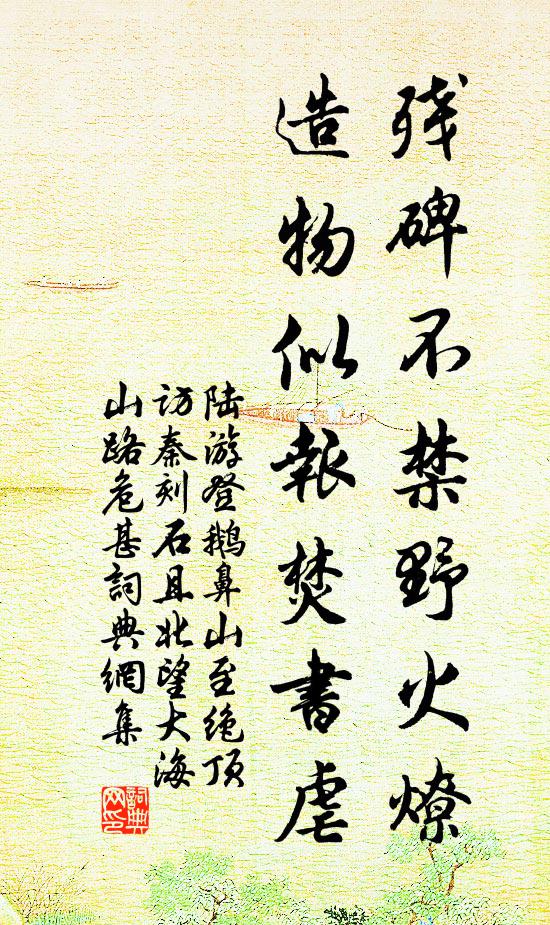 残碑不禁野火燎
造物似報焚書虐
陆游登鵝鼻山至绝頂
访秦刻石且北望大海
山路危甚詞典網集
詞典网印